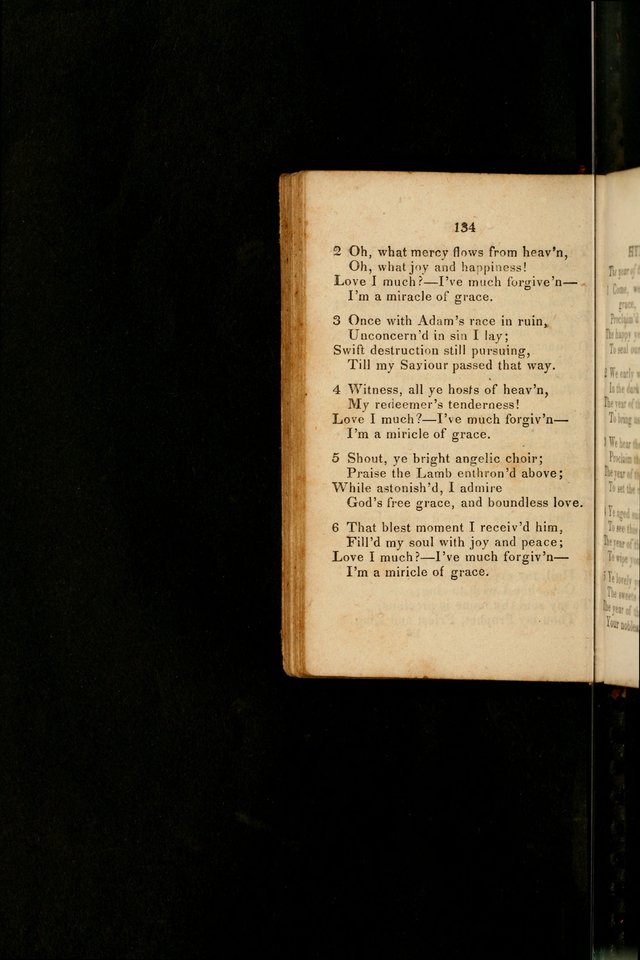 134
2 Oh, what mercy flows from heav'n,
Oh, what joy and happiness!
Love I much?—I've much forgive'n—
I'm a miracle of grace.
3 Once with Adam's race in ruin,
Unconcern'd in sin I lay;
Swift destruction still pursuing,
Till my Saviour passed that way.
4 Witness, all ye hosts of heav'n,
My redeemer's tenderness!
Love I much?—I've much forgiv'n—
I'm a miricle of grace.
5 Shout, ye bright angelic choir;
Praise the Lamb enthron'd above;
While astonish'd, I admire
God's free grace, and boundless love.
6 That blest moment I receiv'd him,
Fill'd my soul with joy and peace;
Love I much?—I've much forgiv'n—
I'm a miricle of grace.
The year of
1 Come,
grace,
Proclaim'd
The happy
To seal our
2 We early
In the dark
The year of
To bring us
3 We hear the
Proclaim
The year of
To set the
4 Ye aged
To see this
The year of
To wipe you
5 Ye lovely
The
The year of
Your